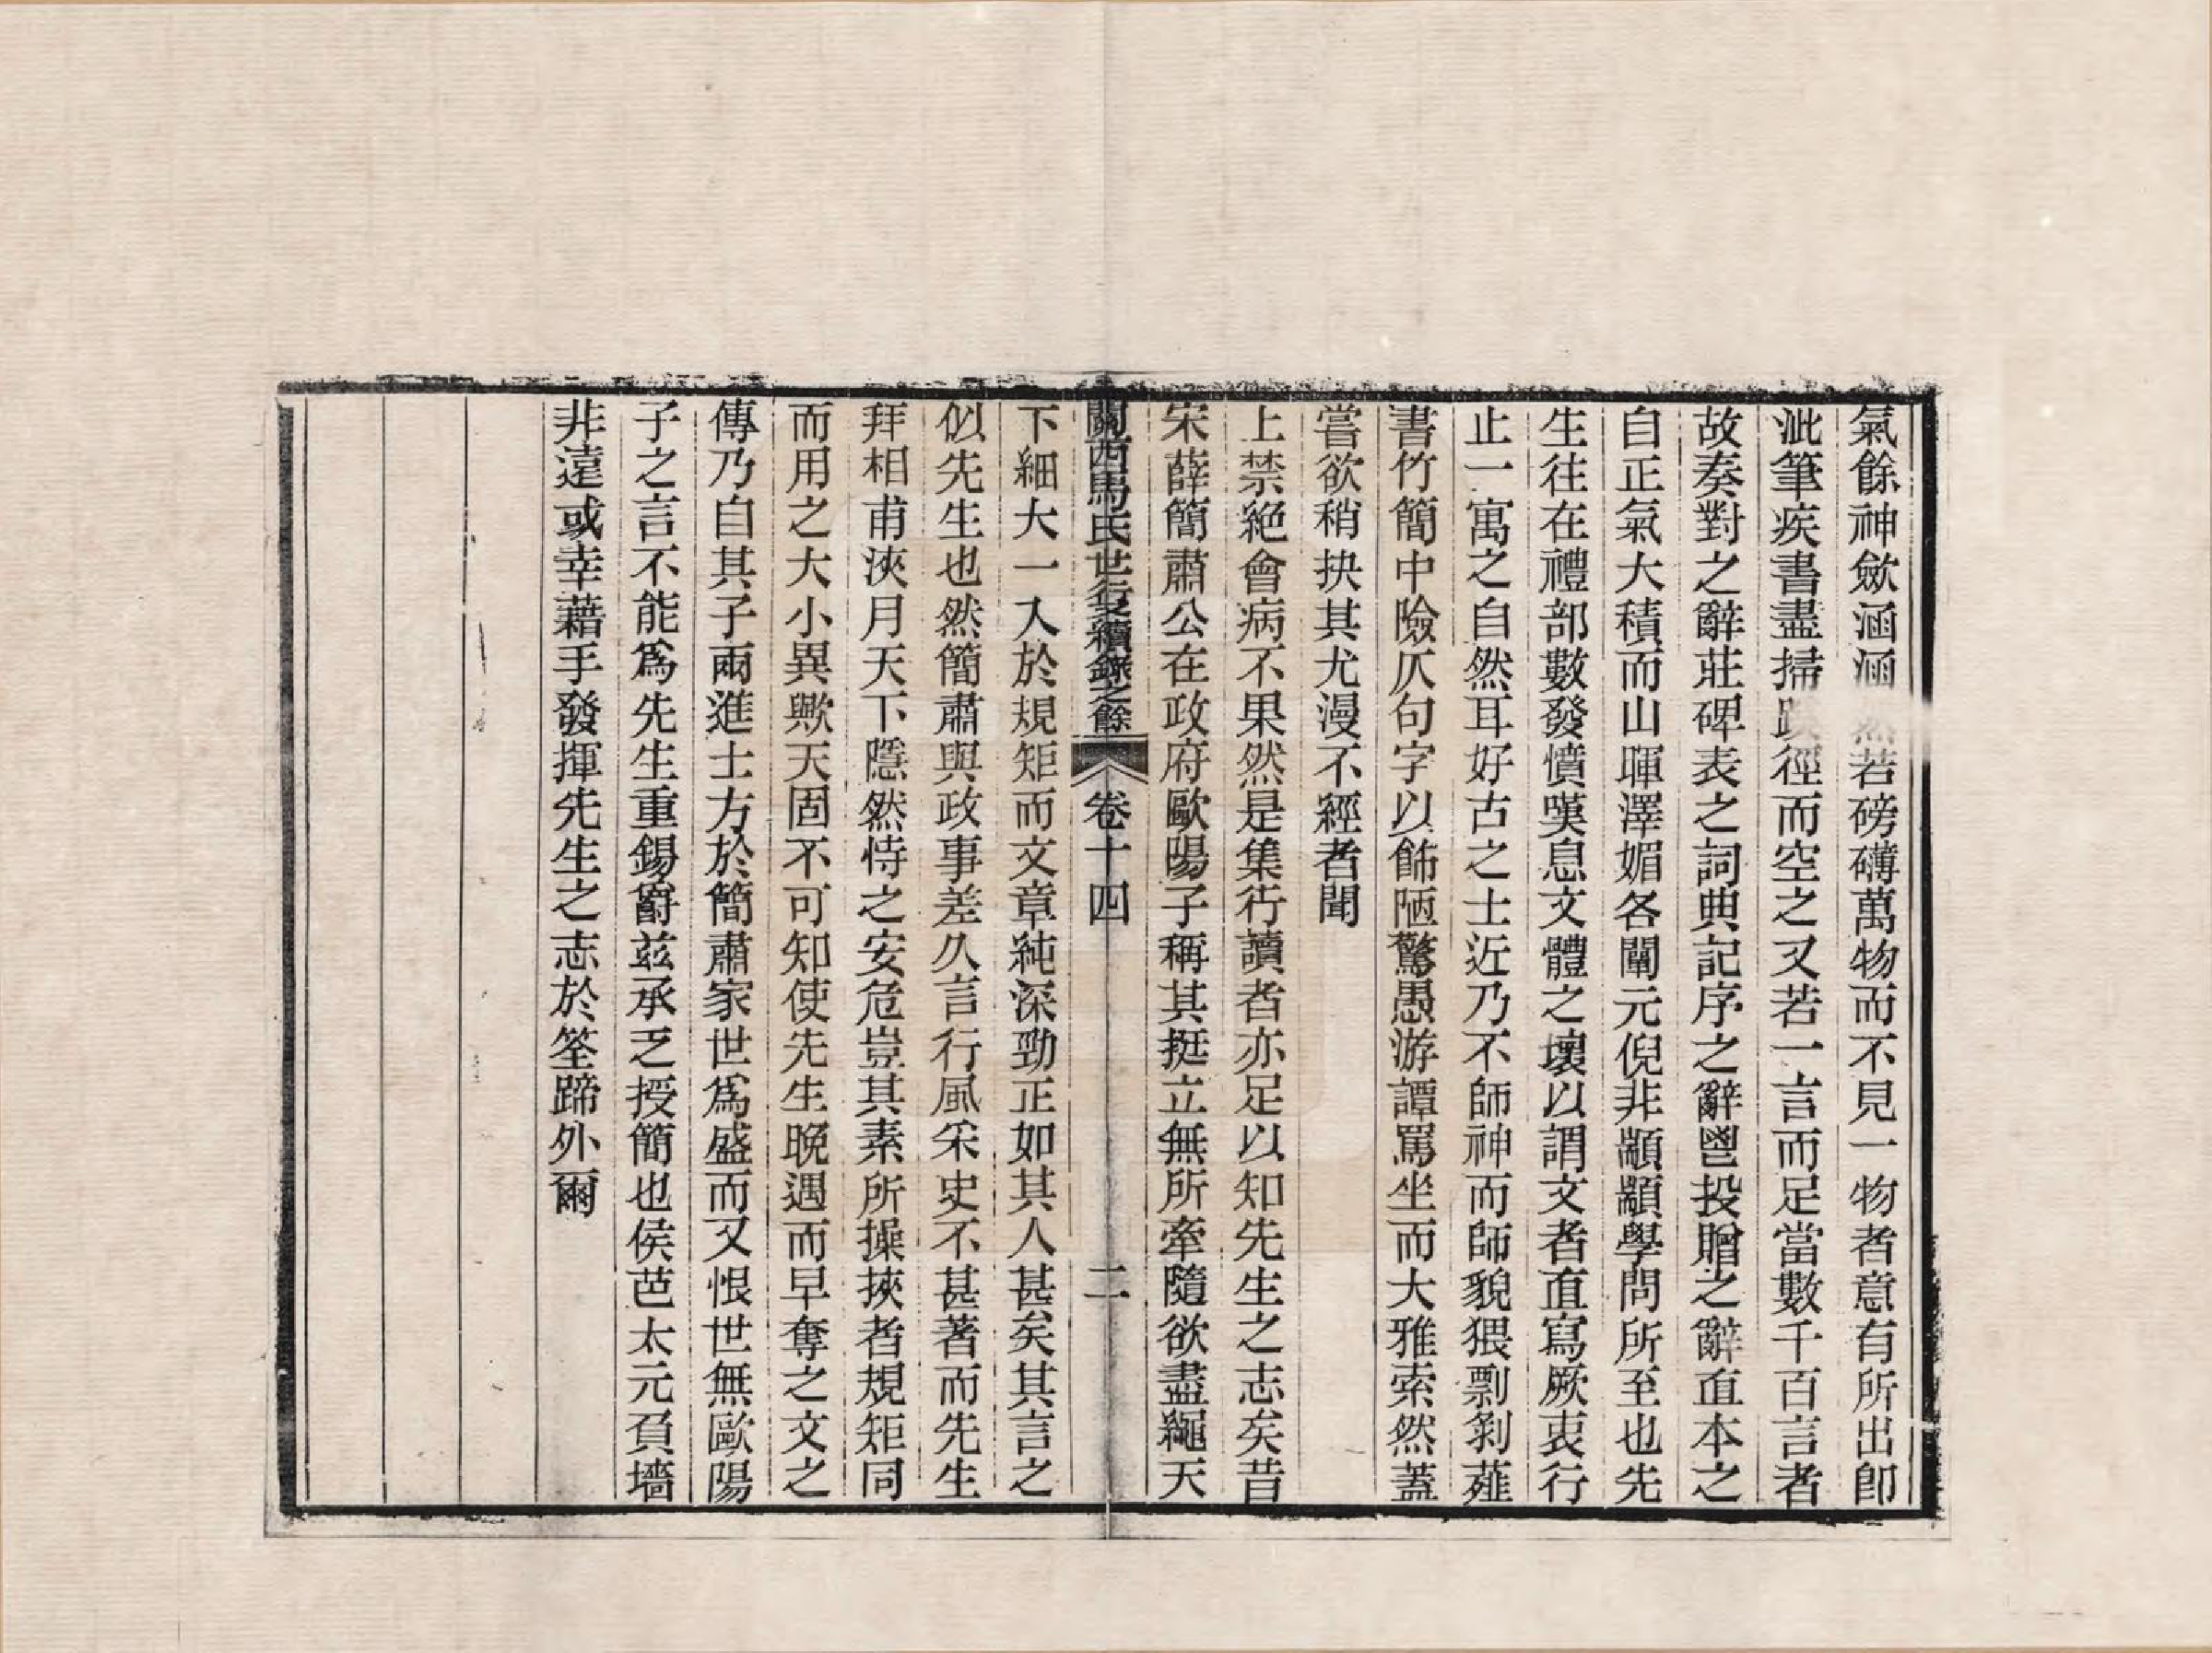 氣餘神歛涵涵然若磅礴萬物而不見一物者意有所出卽
泚筆疾書盡掃蹊徑而空之又若一言而足當數千百言者
故奏對之辭莊碑表之詞典記序之辭鬯投贈之辭直本之
自正氣大積而山暉澤媚各闡元倪非顓顓學問所至也先
生往在禮部數發憤嘆息文體之壞以謂文者直寫厥衷行
止一寓之自然耳好古之士近乃不師神而師貌猥剽剝薤
書竹簡中險仄句字以飾陋驚愚游譚罵坐而大雅索然蓋
嘗欲稍抉其尤漫不經者聞
上禁絕會病不果然是集行讀者亦足以知先生之志矣昔
宋薛簡肅公在政府歐陽子稱其挺立無所牽隨欲盡繩天
關西馬氏世行錄續錄之餘 卷十四 二
下細大一入於規矩而文章純深勁正如其人甚矣其言之
似先生也然簡肅與政事差久言行風采史不甚著而先生
拜相甫浹月天下隱然恃之安危豈其素所操挾者規矩同
而用之大小異歟天固不可知使先生晚遇而早奪之文之
傳乃自其子兩進士方於簡肅家世爲盛而又恨世無歐陽
子之言不能爲先生重錫爵玆承乏授簡也侯芭太元頁墻
非遠或幸藉手發揮先生之志於筌蹄外爾